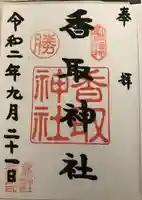 奉拝
香取神社
勝
香取神社
令和二年九月二十一日